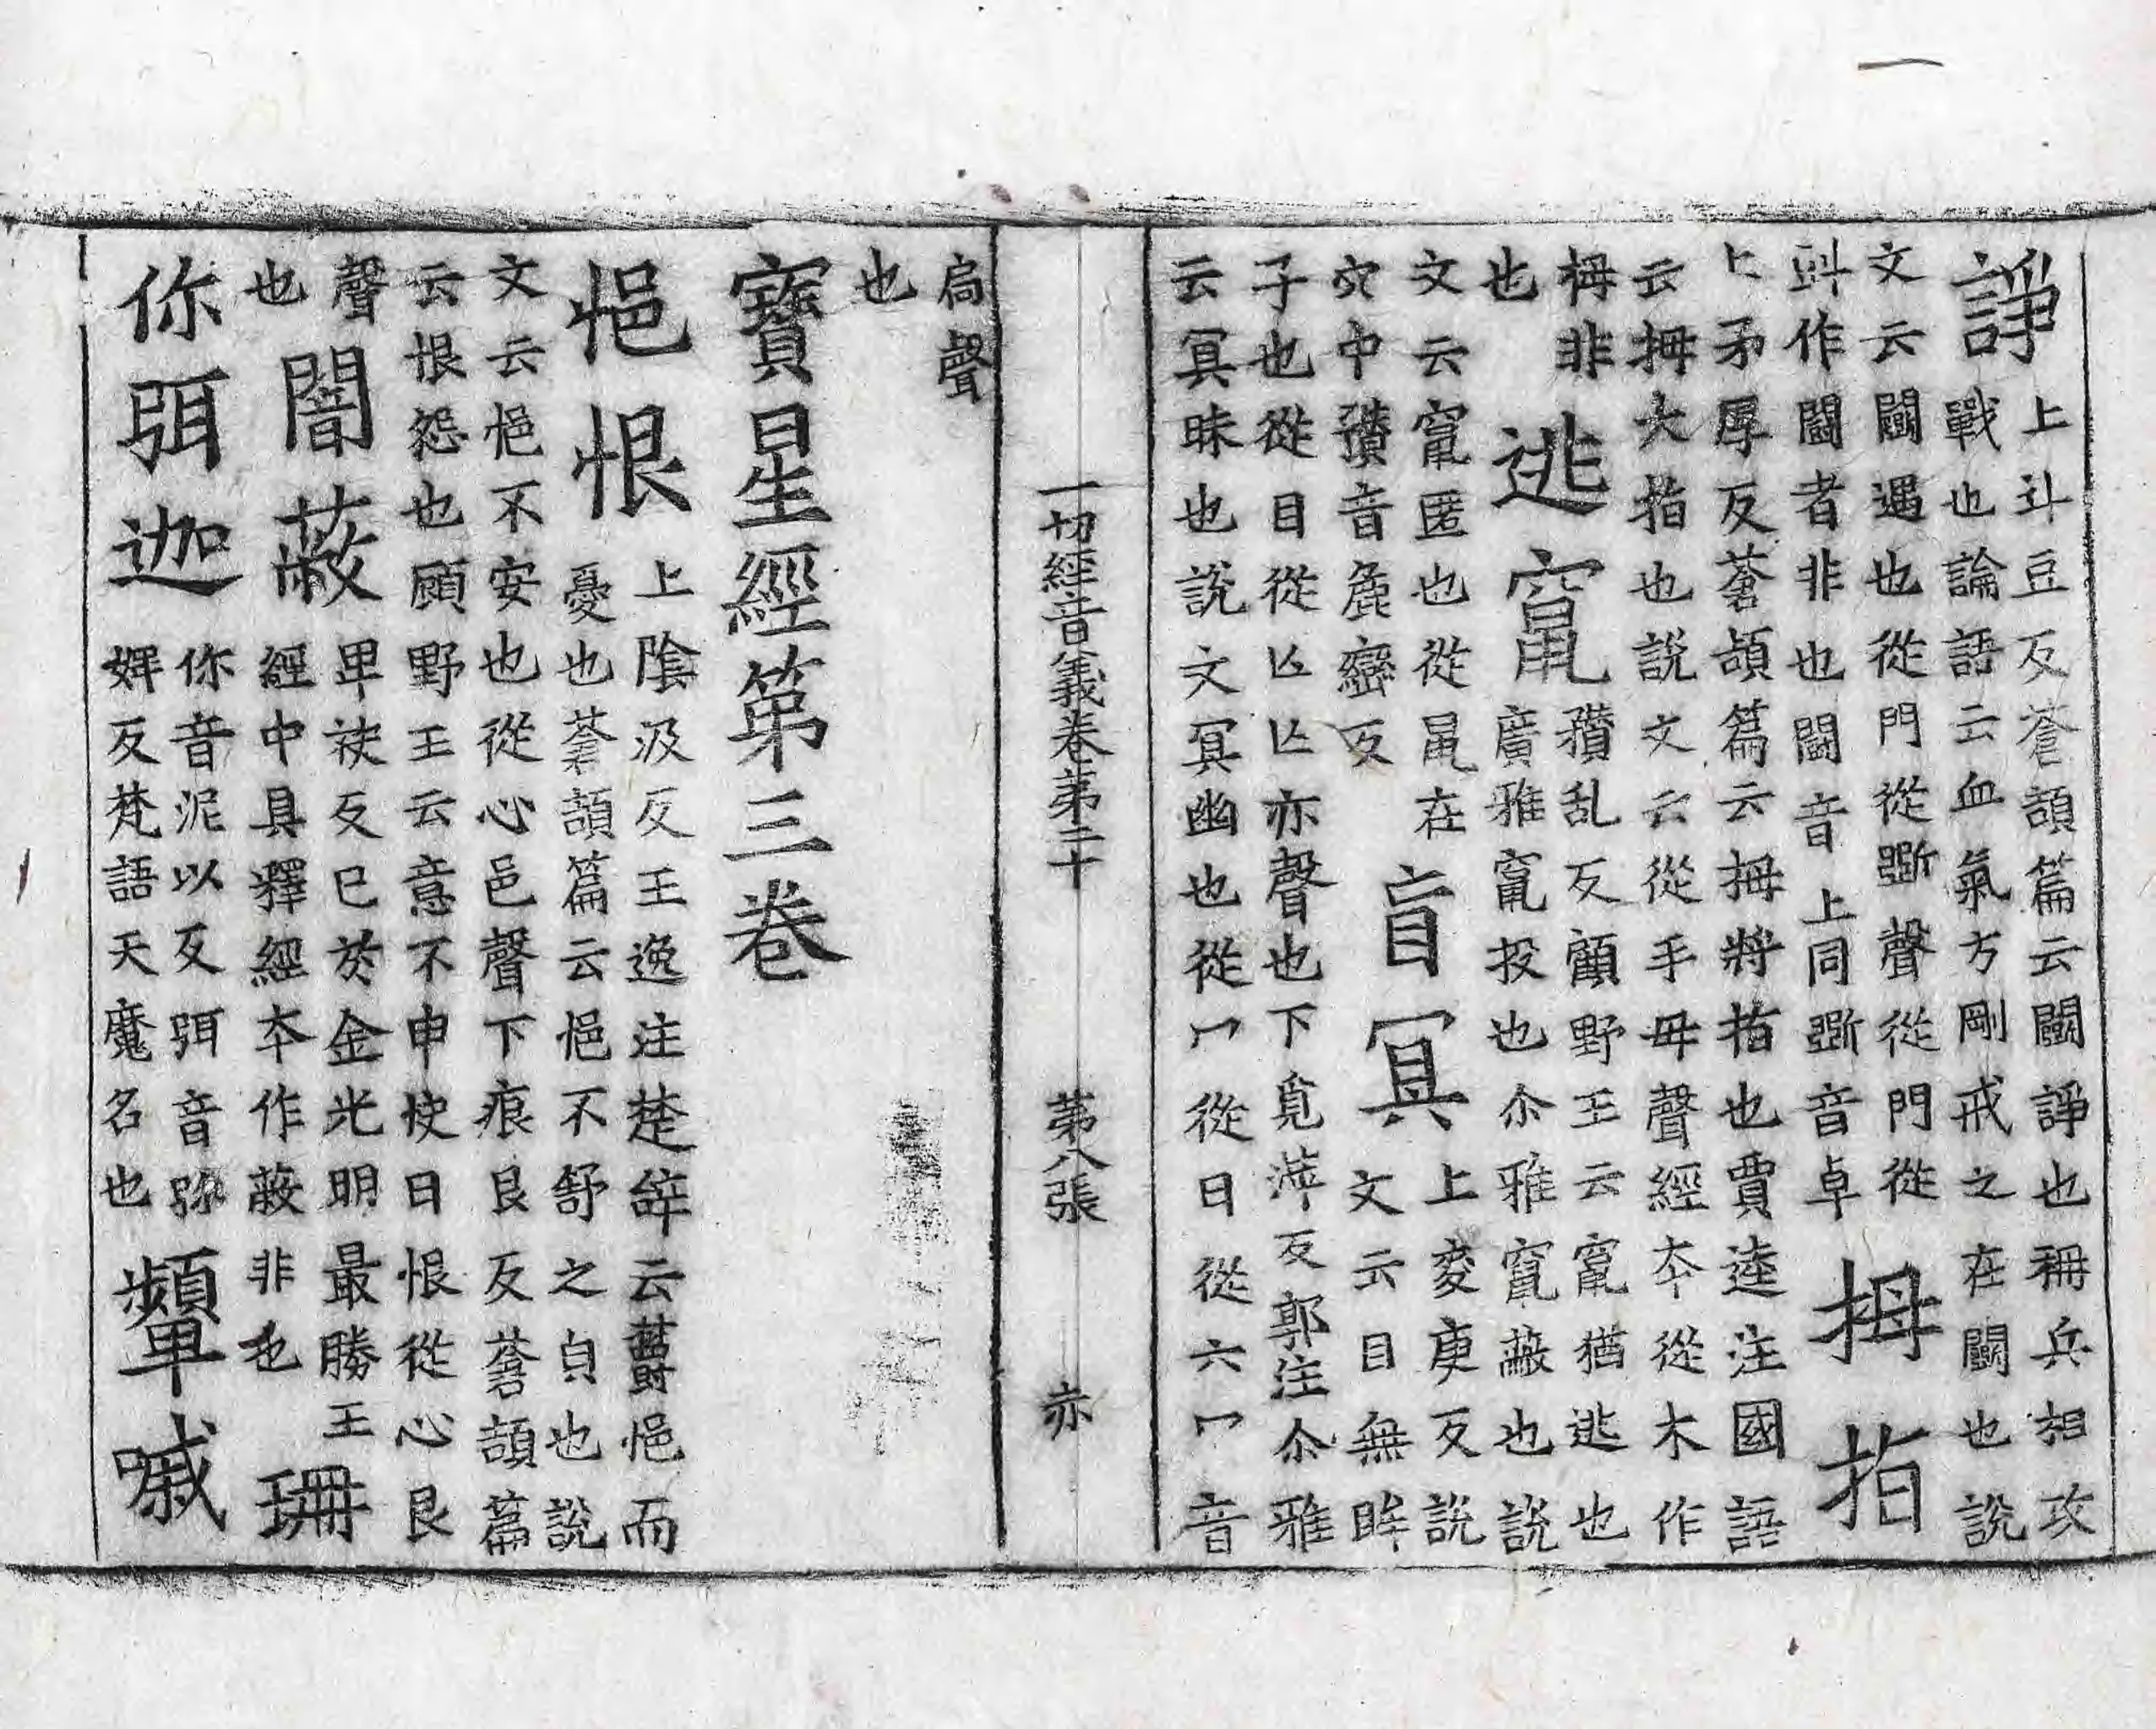 諍
上斗豆反蒼頡篇云鬪諍也稱兵相攻
戰也論語云血氣方剛戒之在鬪也說
文云鬪遇也從門從斲聲從門從
作鬪者非也鬪音上同斲音卓
拇指
上矛厚反蒼頡篇云拇將指也賈逵注國語
云拇大指也說文云從手母聲經夲從木作
栂非
也
逃竄
攢乱反顧野王云竄猶逃也
廣雅竄投也尒雅竄蔽也說
文云竄匿也從鼠在
穴中攢音麁巒反
盲冥
上麦庚反說
文云目無眸
子也從目從亾亾亦聲也下覓萍反郭注尒雅
云冥昧也說文冥幽也從冖從日從六冖音
一切經音義卷第二十 第八張 亦
扃聲
也
寶星經第三卷
悒恨
上陰汲反王逸注楚辝云欝悒而
憂也蒼頡篇云悒不舒之皃也說
文云悒不安也從心邑聲下痕艮反蒼頡篇
云恨怨也顧野王云意不申快曰恨從心艮
聲
也
闇蔽
卑袂反已於金光明最勝王
經中具釋經夲作䔽非也
珊
你弭迦
你音泥以反弭音弥
婢反梵語天魔名也
顰嘁